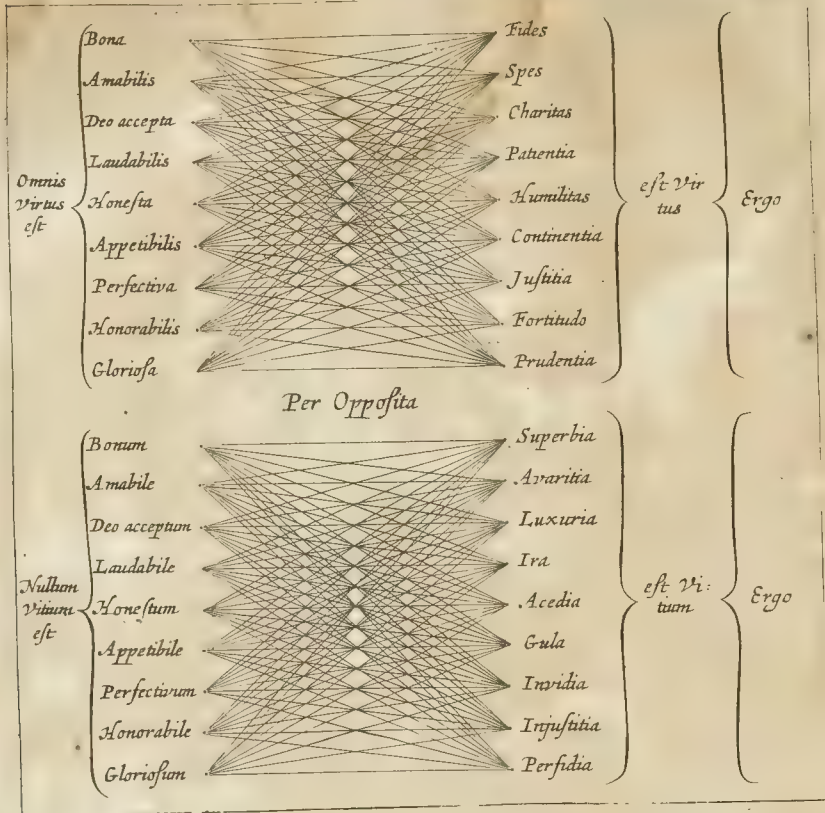 Omnis
Virtus
eſt
Bona
Amabilis
Deo accepta
Laudabilis
Honeſta
Appetibilis
Perfectiva
Honorabilis
Glorioſa
Fides
Spes
Charitas
Patientia
Humilitas
Continentia
Juſtitia
Fortitudo
Prudentia
eſt Vir
tus
Ergo
Per Oppoſita
Nullum
Vitium
eſt
Bonum
Amabile
Deo acceptum
Laudabile
Honeſtum
Appetibile
Perfectivum
Honorabile
Glorioſum
Superbia
Avaritia
Luxuria
Ira
Acedia
Gula
Invidia
Injuſtitia
Perfidia
eſt Vi:
tium
Ergo